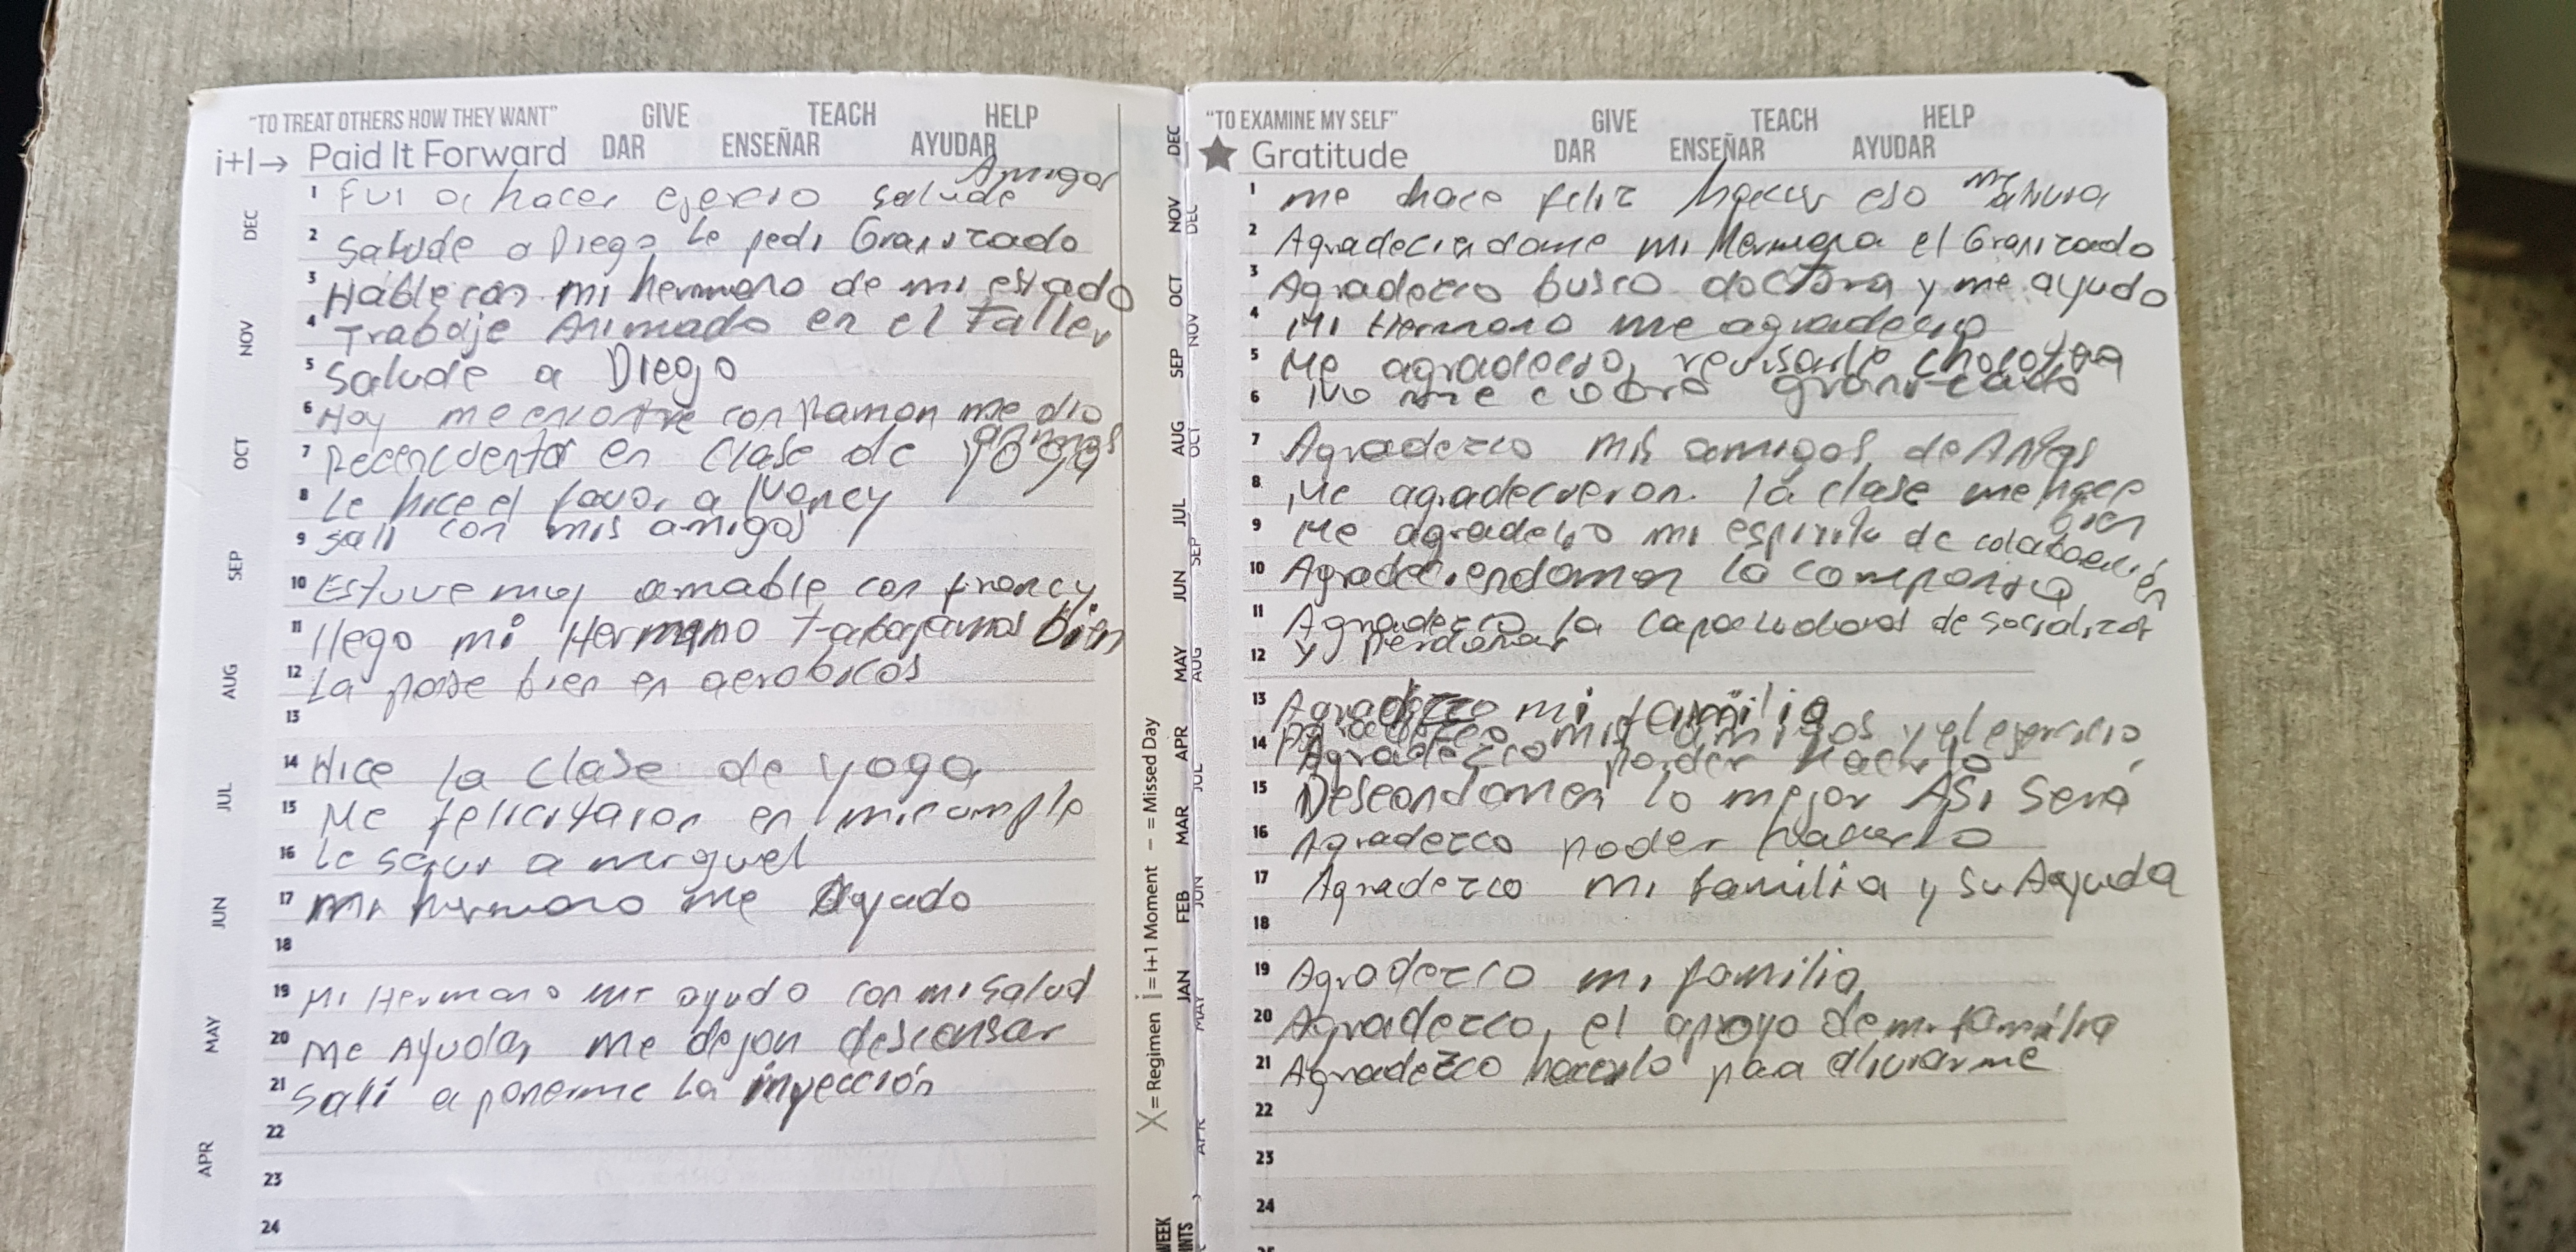 "TO TREAT OTHERS HOW THEY WANT" GIVE TEACH HELP
i+1→ Paid It Forward DAR ENSEÑAR AYUDAR
Amigos
1 Fui a hacer ejercio salude
2 Salude a Diego le pedi Granizado
3 Hable con mi hermano de mi estado
4 Trabaje Animado en el Taller
5 Salude a Diego
6 Hoy me encontre con Ramon me dio
7 en clase de yoga
8 Le hice el favor a Nancy
9 sali con mis amigos
10 Estuve muy amable con francy
11 llego mi Hermano trabajamos bien
12 La pase bien en aerobicos
13
14 Hice la clase de yoga
15 Me felicitaron en mi cumple
16 Le a miguel
17 mi hermano me Ayudo
18
19 Mi Hermano me ayudo con mi salud
20 Me Ayudan me dejan descansar
21 Sali a ponerme la inyección
22
23
24
DEC
NOV
OCT
SEP
AUG
JUL
JUN
MAY
APR
X = Regimen i = i+1 Moment - = Missed Day
"TO EXAMINE MY SELF" GIVE TEACH HELP
★ Gratitude DAR ENSEÑAR AYUDAR
1 me hace feliz hacer eso me
2 mi Hermana el Granizado
3 Agradezco busco doctora y me ayudo
4 Mi Hermano me agradecio
5 Me agradecio, revisarle
6 No me cobro granizado
7 Agradezco mis amigos de
8 Me agradecieron. la clase me hace
bien
9 Me agradecio mi espiritu de colaboración
10 Agradeciendome la compañia
11 Agradezco la de socializar
12 y perdonar
13 Agradezco mi familia
Agradezco mis amigos y el ejercicio
14 Agradezco poder hacerlo
15 lo mejor Asi Será
16 Agradezco poder hacerlo
17 Agradezco mi familia y su Ayuda
18
19 Agradezco mi familia
20 Agradezco, el apoyo de mi familia
21 Agradezco hacerlo para aliviarme
22
23
24
DEC
NOV
OCT
SEP
AUG
JUL
JUN
MAY
APR
MAR
FEB
JAN